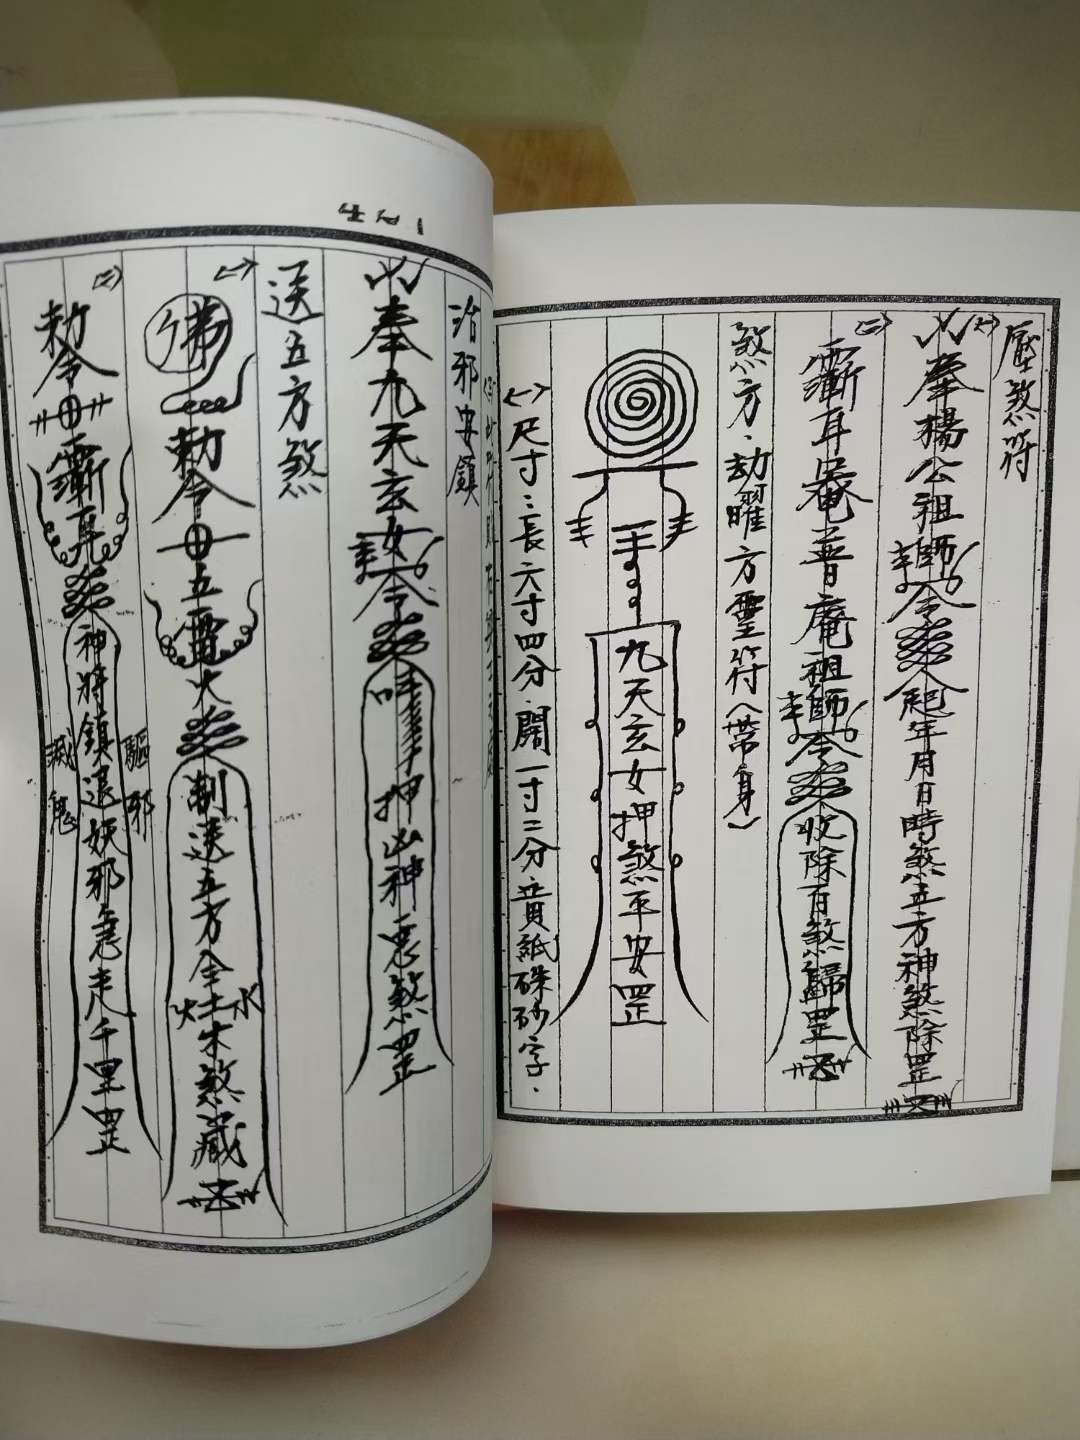 壓煞符
(一)
奉楊公祖師令 起年月日時煞五方神煞除罡
(二)
普庵祖師令 收除百煞歸罡
煞方、劫曜方靈符(帶身)
九天玄女押煞平安罡
(一)尺寸:長六寸四分,闊一寸二分黃紙硃砂字.
治邪安鎮
奉九天玄女令 押凶神惡煞罡
送五方煞
(一)
佛
勅令 五雷火 制送五方金土木煞藏
火
水
(二)
勅令 神將鎮退妖邪急走千里罡
驅邪
滅鬼